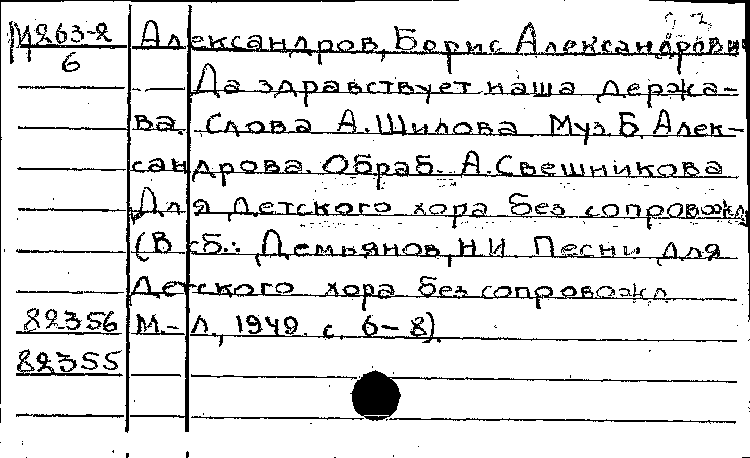 М263-2 Александров, Борис Александрович
6
Да здравствует наша держа-
ва. Слова А. Шилова Муз. Б. Алек-
сандрова. Обраб. А. Свешникова
Для детского хора без сопровожд
(В сб.: Демьянов, Н.И. Песни для
детского хора без сопровожд.
82356 М.-Л., 1949. с. 6-8).
82355